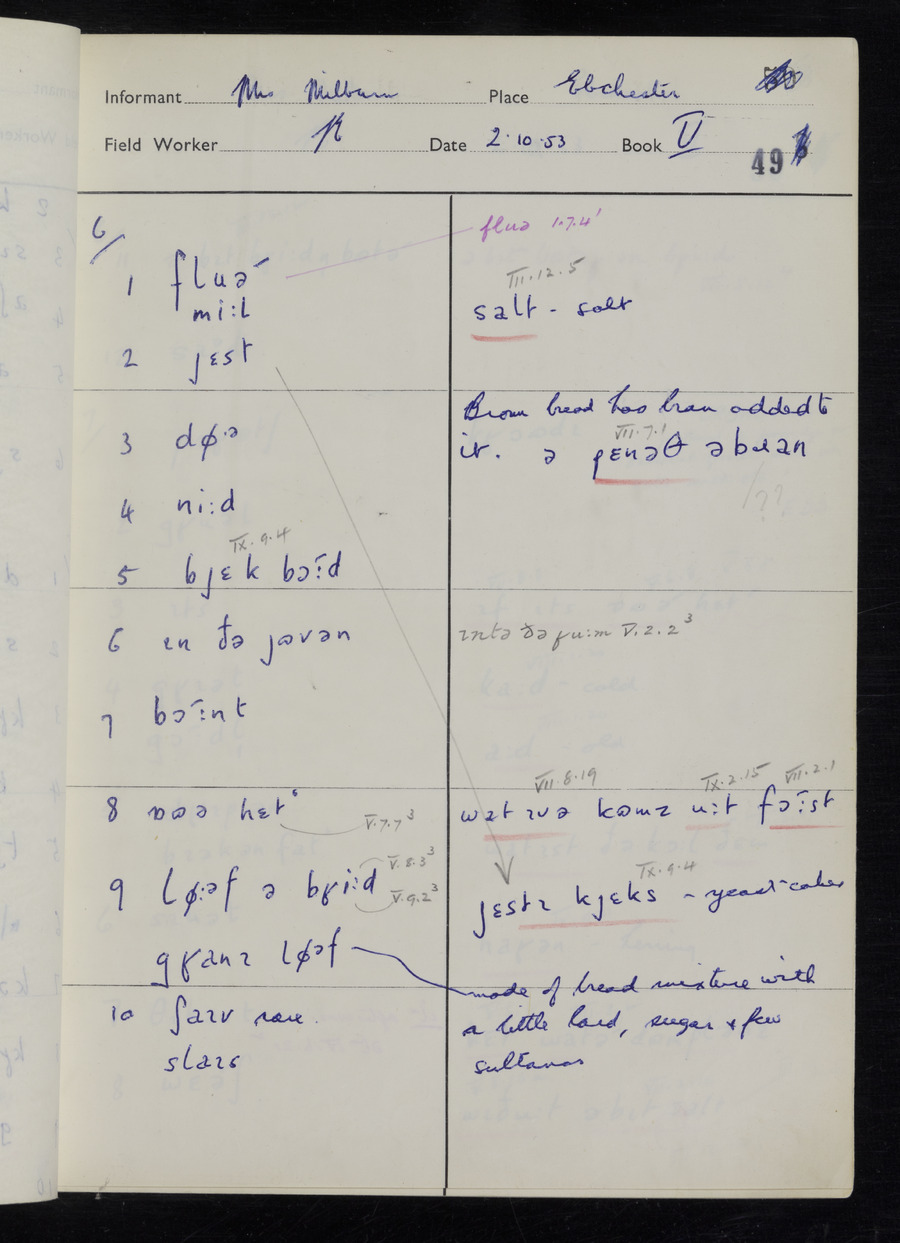 Informant Mrs Milburn Place Ebchester
Field Worker Date 2.10.53 Book V
49
6/
1 fluə
mi:l
2 jɛst
3 dø·ə
4 ni:d
IX.9.4
5 bjɛk bɔ:d
6 ɪn ðə jɒvən
7 bɔ:nt
8 hɛt
V.7.7³
9 lø:əf ə bʁi:d
V.8.3³
V.9.2³
gʁanɪ løəf
10 ʃaɪv rare.
slaɪs
fluə 1.7.4'
III.12.5
salt - salt
Brown bread has bran added to
it. ə pɛnəθ ə bʁan
VII.7.1
??
ɪntə ðə V.2.2³
VII.8.19 IX.2.15 VII.2.1
wat ɪvə kɒmz u:t fɔ:st
IX.9.4
jɛstɪ kjɛks - yeast-cakes
made of bread mixture with
a little lard, sugar & few
sultanas